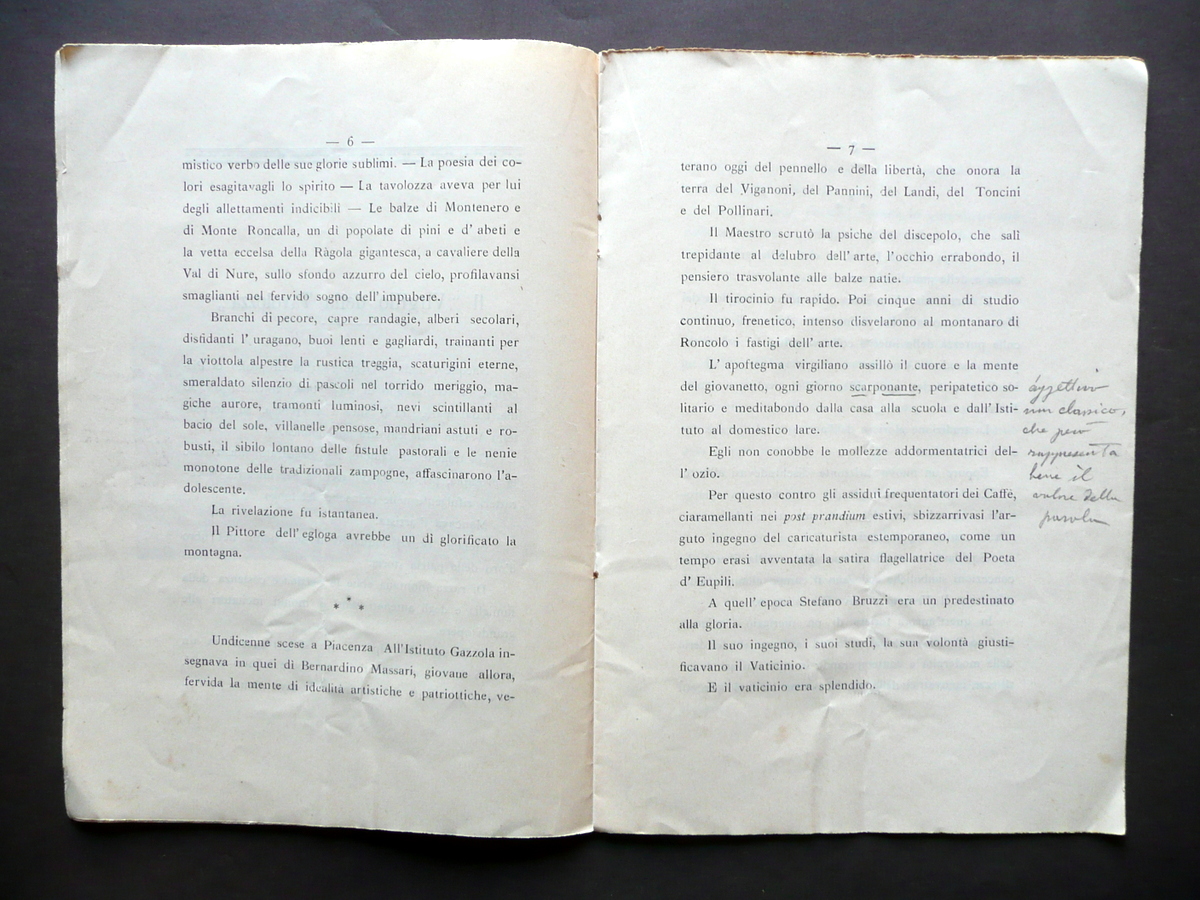 — 6 —
mistico verbo delle sue glorie sublimi. — La poesia dei co-
lori esagitavagli lo spirito — La tavolozza aveva per lui
degli allettamenti indicibili — Le balze di Montenero e
di Monte Roncalla, un dì popolate di pini e d' abeti e
la vetta eccelsa della Ràgola gigantesca, a cavaliere della
Val di Nure, sullo sfondo azzurro del cielo, profilavansi
smaglianti nel fervido sogno dell' impubere.
Branchi di pecore, capre randagie, alberi secolari,
disfidanti l' uragano, buoi lenti e gagliardi, trainanti per
la viottola alpestre la rustica treggia, scaturigini eterne,
smeraldato silenzio di pascoli nel torrido meriggio, ma-
giche aurore, tramonti luminosi, nevi scintillanti al
bacio del sole, villanelle pensose, mandriani astuti e ro-
busti, il sibilo lontano delle fistule pastorali e le nenie
monotone delle tradizionali zampogne, affascinarono l'a-
dolescente.
La rivelazione fu istantanea.
Il Pittore dell' egloga avrebbe un dì glorificato la
montagna.
* * *
Undicenne scese a Piacenza All'Istituto Gazzola in-
segnava in quei dì Bernardino Massari, giovane allora,
fervida la mente di idealità artistiche e patriottiche, ve-
— 7 —
terano oggi del pennello e della libertà, che onora la
terra del Viganoni, del Pannini, del Landi, del Toncini
e del Pollinari.
Il Maestro scrutò la psiche del discepolo, che salì
trepidante al delubro dell' arte, l'occhio errabondo, il
pensiero trasvolante alle balze natie.
Il tirocinio fu rapido. Poi cinque anni di studio
continuo, frenetico, intenso disvelarono al montanaro di
Roncolo i fastigi dell' arte.
L' apoftegma virgiliano assillò il cuore e la mente
del giovanetto, ogni giorno scarponante, peripatetico so-
litario e meditabondo dalla casa alla scuola e dall' Isti-
tuto al domestico lare.
aggettivo
non classico,
che però
rappresenta
bene il
valore della
parola
Egli non conobbe le mollezze addormentatrici del-
l' ozio.
Per questo contro gli assidui frequentatori dei Caffè,
ciaramellanti nei post prandium estivi, sbizzarrivasi l'ar-
guto ingegno del caricaturista estemporaneo, come un
tempo erasi avventata la satira flagellatrice del Poeta
d' Eupili.
A quell' epoca Stefano Bruzzi era un predestinato
alla gloria.
Il suo ingegno, i suoi studì, la sua volontà giusti-
ficavano il Vaticinio.
E il vaticinio era splendido.